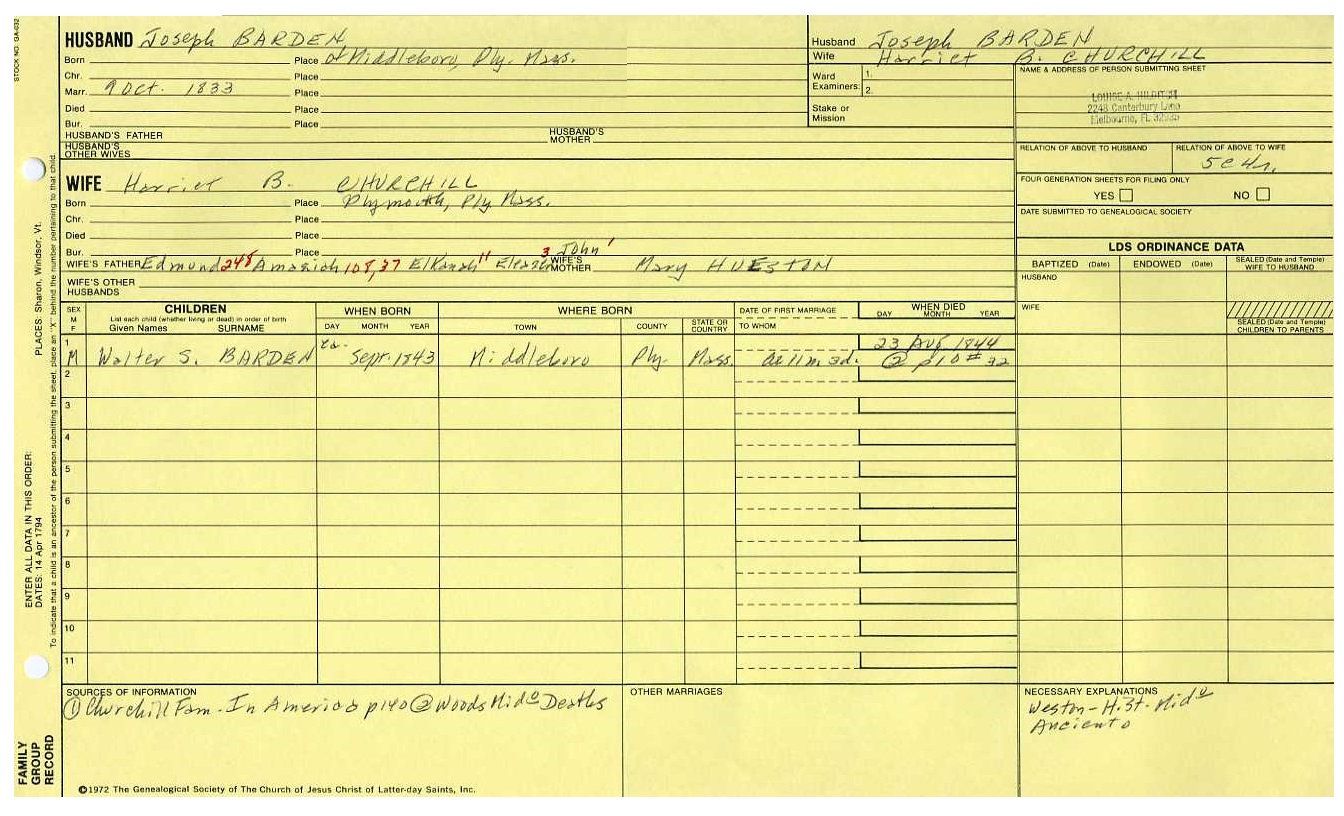 STOCK NO. GA-032
HUSBAND Joseph BARDEN
Born Place of Middleboro, Ply. Mass.
Chr. Place
Marr. 9 Oct. 1833 Place
Died Place
Bur. Place
HUSBAND'S FATHER HUSBAND'S MOTHER
HUSBAND'S OTHER WIVES
Husband Joseph BARDEN
Wife Harriet B. CHURCHILL
Ward Examiners: 1.
2.
Stake or Mission
NAME & ADDRESS OF PERSON SUBMITTING SHEET
LOUISE A.
2248 Canterbury Lane
Melbourne, FL
RELATION OF ABOVE TO HUSBAND RELATION OF ABOVE TO WIFE
5C4r.
FOUR GENERATION SHEETS FOR FILING ONLY
YES NO
DATE SUBMITTED TO GENEALOGICAL SOCIETY
WIFE Harriet B. CHURCHILL
Born Place Plymouth, Ply Mass.
Chr. Place
Died Place
Bur. Place
WIFE'S FATHER Edmund 248 Amaziah 108, 37 Elkanah 11 Eleazer 3 John 1 WIFE'S MOTHER Mary HUESTON
WIFE'S OTHER HUSBANDS
LDS ORDINANCE DATA
BAPTIZED (Date) ENDOWED (Date) SEALED (Date and Temple) WIFE TO HUSBAND
HUSBAND
WIFE
SEALED (Date and Temple) CHILDREN TO PARENTS
SEX M F CHILDREN WHEN BORN WHERE BORN DATE OF FIRST MARRIAGE WHEN DIED
List each child (whether living or dead) in order of birth
Given Names SURNAME DAY MONTH YEAR TOWN COUNTY STATE OR COUNTRY TO WHOM DAY MONTH YEAR
1 23 Aug 1844
M Walter S. BARDEN ca. Sept. 1843 Middleboro Ply. Mass. ae 11m 3d. @ p10 #32
2
3
4
5
6
7
8
9
10
11
SOURCES OF INFORMATION
① Churchill Fam. In America p140 ② Woods Mid° Deaths
OTHER MARRIAGES
NECESSARY EXPLANATIONS
Weston - Hist. Mid°
Ancient°
©1972 The Genealogical Society of The Church of Jesus Christ of Latter-day Saints, Inc.
FAMILY GROUP RECORD
ENTER ALL DATA IN THIS ORDER:
DATES: 14 Apr 1794
PLACES: Sharon, Windsor, Vt.
To indicate that a child is an ancestor of the person submitting the sheet, place an "X" behind the number pertaining to that child.